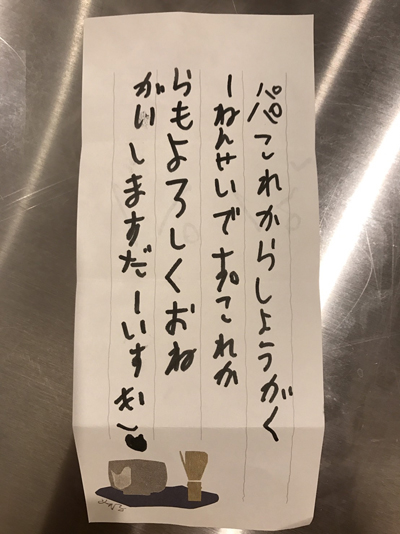 パパこれからしょうがく
一ねんせいですこれか
らもよろしくおね
がいしますだーいすき〜